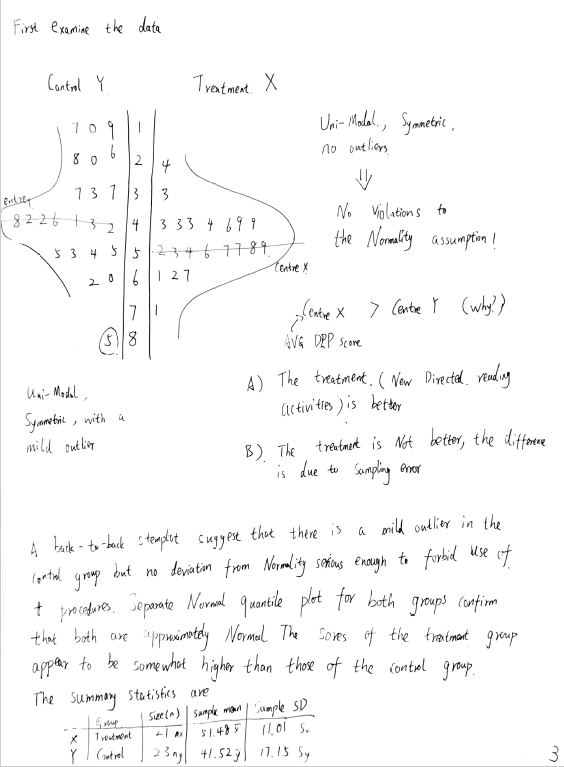 First examine the data
Control Y Treatment X
7 0 9 | 1 |
8 0 6 | 2 | 4
7 3 7 | 3 | 3
8 2 2 6 1 3 2 | 4 | 3 3 3 4 6 9 9
5 3 4 5 | 5 | 2 3 4 6 7 7 8 9
2 0 | 6 | 1 2 7
| 7 | 1
5 | 8 |
Centre X
Uni-Modal,
Symmetric, with a
mild outlier
Uni-Modal, Symmetric,
no outliers
⇓
No Violations to
the Normality assumption!
Centre X > Centre Y (why?)
AVG DRP score
A) The treatment (New Directed reading
activities) is better
B) The treatment is Not better, the difference
is due to Sampling error
A back-to-back stemplot suggest that there is a mild outlier in the
control group but no deviation from Normality serious enough to forbid use of
t procedures. Separate Normal quantile plot for both groups confirm
that both are approximately Normal. The Scores of the treatment group
appear to be somewhat higher than those of the control group.
The summary statistics are
Group | Size(n) | sample mean | Sample SD
X | Treatment | 21 nx | 51.48 x̄ | 11.01 Sx
Y | Control | 23 ny | 41.52 ȳ | 17.15 Sy
3